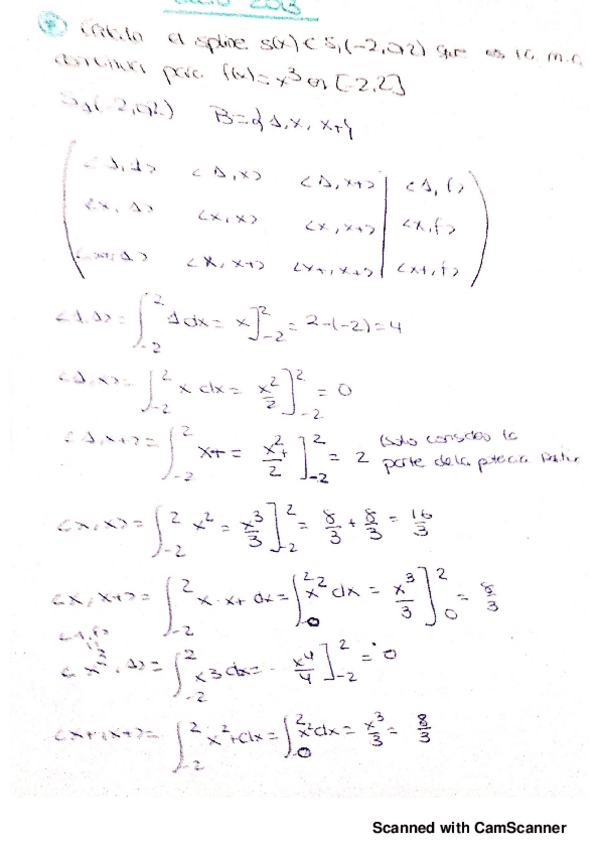 Julio 2013
Calcula el spline s(x) ∈ S₁(-2,0,2) que es la m.a.
continua para f(x)=x³ en [-2,2]
S₁(-2,0,2) B={1,x,x+}
<1,1> <1,x> <1,x+> | <1,f>
<x,1> <x,x> <x,x+> | <x,f>
<x+,1> <x,x+> <x+,x+> | <x+,f>
<1,1> = ∫₋₂² 1dx = x]₋₂² = 2-(-2)=4
<1,x> = ∫₋₂² x dx = x²/2]₋₂² = 0
<1,x+> = ∫₋₂² x+ = x²+/2]₋₂² = 2 (solo considero la
parte de la potencia
<x,x> = ∫₋₂² x² = x³/3]₋₂² = 8/3 + 8/3 = 16/3
<x,x+> = ∫₋₂² x·x+ dx = ∫₀² x² dx = x³/3]₀² = 8/3
<1,f>
<x³,1> = ∫₋₂² x³dx = x⁴/4]₋₂² = 0
<x+,x+> = ∫₋₂² x²+dx = ∫₀² x²dx = x³/3 = 8/3
Scanned with CamScanner